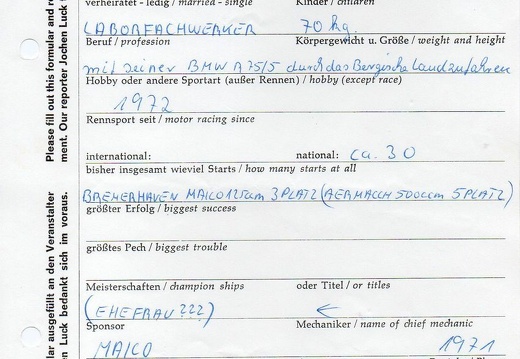 verheiratet - ledig / married - single Kinder / children
LABORFACHWERKER 70 kg.
Beruf / profession Körpergewicht u. Größe / weight and height
mit seiner BMW R 75/5 durch das Bergische Land zu fahren
Hobby oder andere Sportart (außer Rennen) / hobby (except race)
1972
Rennsport seit / motor racing since
international: national: ca. 30
bisher insgesamt wieviel Starts / how many starts at all
BREMERHAVEN MAICO 125ccm 3 PLATZ (AERMACCH 500ccm 5 PLATZ)
größter Erfolg / biggest success
größtes Pech / biggest trouble
Meisterschaften / champion ships oder Titel / or titles
(EHEFRAU ???) ←
Sponsor Mechaniker / name of chief mechanic
MAICO 1971
Please fill out this formular and re
ment. Our reporter Jochen Luck
lar ausgefüllt an den Veranstalter
en Luck bedankt sich im voraus.